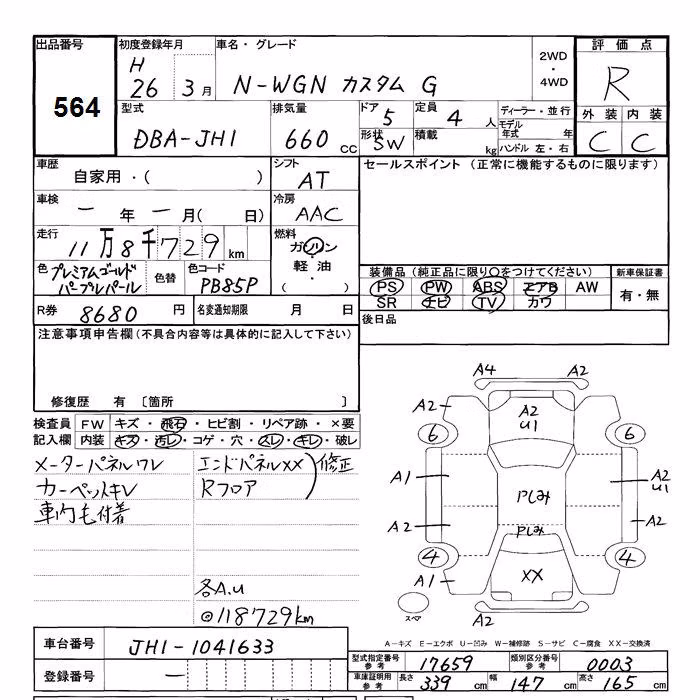 出品番号 初度登録年月 車名・グレード 評価点
564
H 26 3月 N-WGN カスタム G 2WD・4WD R
型式 排気量 ドア 5 定員 4人 ディーラー・並行 外装 内装
DBA-JH1 660cc 形状 SW 積載 kg モデル年式 年 C C
ハンドル 左・右
車歴 シフト セールスポイント (正常に機能するものに限ります)
自家用・( ) AT
車検 冷房
一年一月( 日) AAC
走行 燃料
11万8千729km ガソリン・軽油・( )
色 プレミアムゴールドパープルパール 色替 色コード PB85P
装備品 (純正品に限り○をつけてください) 新車保証書
PS PW ABS エアB AW 有・無
SR ナビ TV カワ
R券 8680円 名変通知期限 月 日 後日品
注意事項申告欄(不具合内容等は具体的に記入して下さい)
修復歴 有 〔箇所 〕
検査員記入欄 FW キズ・飛石・ヒビ割・リペア跡・×要
内装 キズ・汚レ・コゲ・穴・スレ・キレ・破レ
メーターパネルワレ エンドパネルXX 修正
カーペットキレ Rフロア
車内毛付着
各A.U
◎118729km
A4 A2
A2 A2 U1
6 6
A1 Pしみ A2 U1
A2 Pしみ A2
4 4
A1 XX
スペア A2
A−キズ E−エクボ U−凹み W−補修跡 S−サビ C−腐食 XX−交換済
車台番号 JH1-1041633
登録番号 −
型式指定番号参考 17659 類別区分番号参考 0003
車庫証明用参考 長さ 339cm 幅 147cm 高さ 165cm